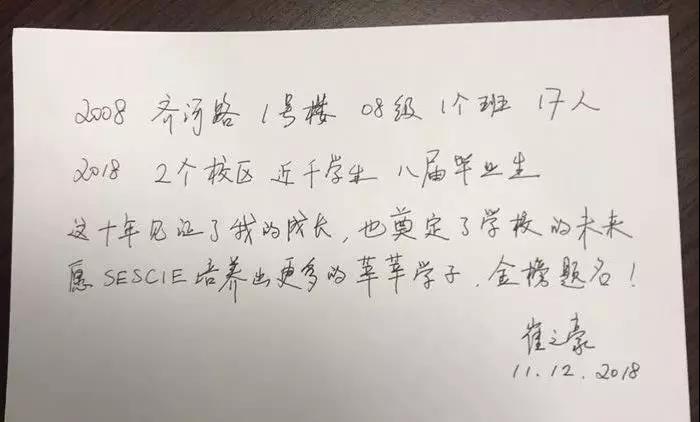 2008 齐河路 1号楼 08级 1个班 17人
2018 2个校区 近千学生 八届毕业生
这十年见证了我的成长，也奠定了学校的未来
愿SESCIE培养出更多的莘莘学子，金榜题名！
崔之豪
11.12.2018